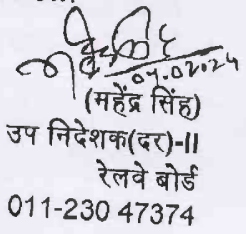 07.02.2024
(महेंद्र सिंह)
उप निदेशक(दर)-II
रेलवे बोर्ड
011-230 47374